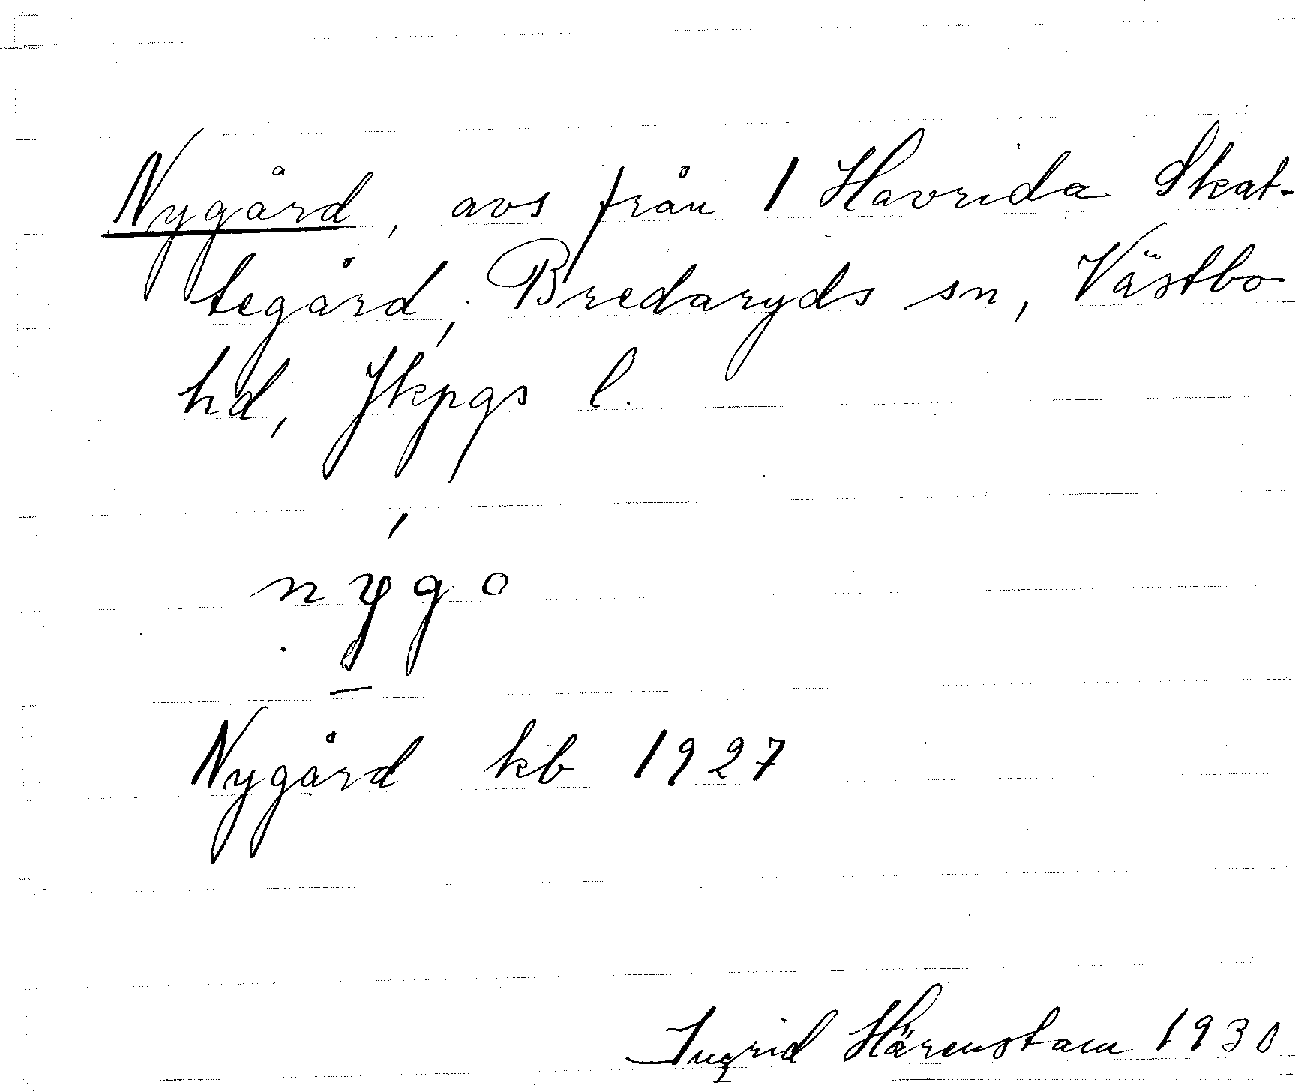 Nygård, avs från 1 Havrida Skat-
tegård, Bredaryds sn, Västbo
hd, Jkpgs l.
nygo
Nygård kb 1927
Ingrid Härenstam 1930